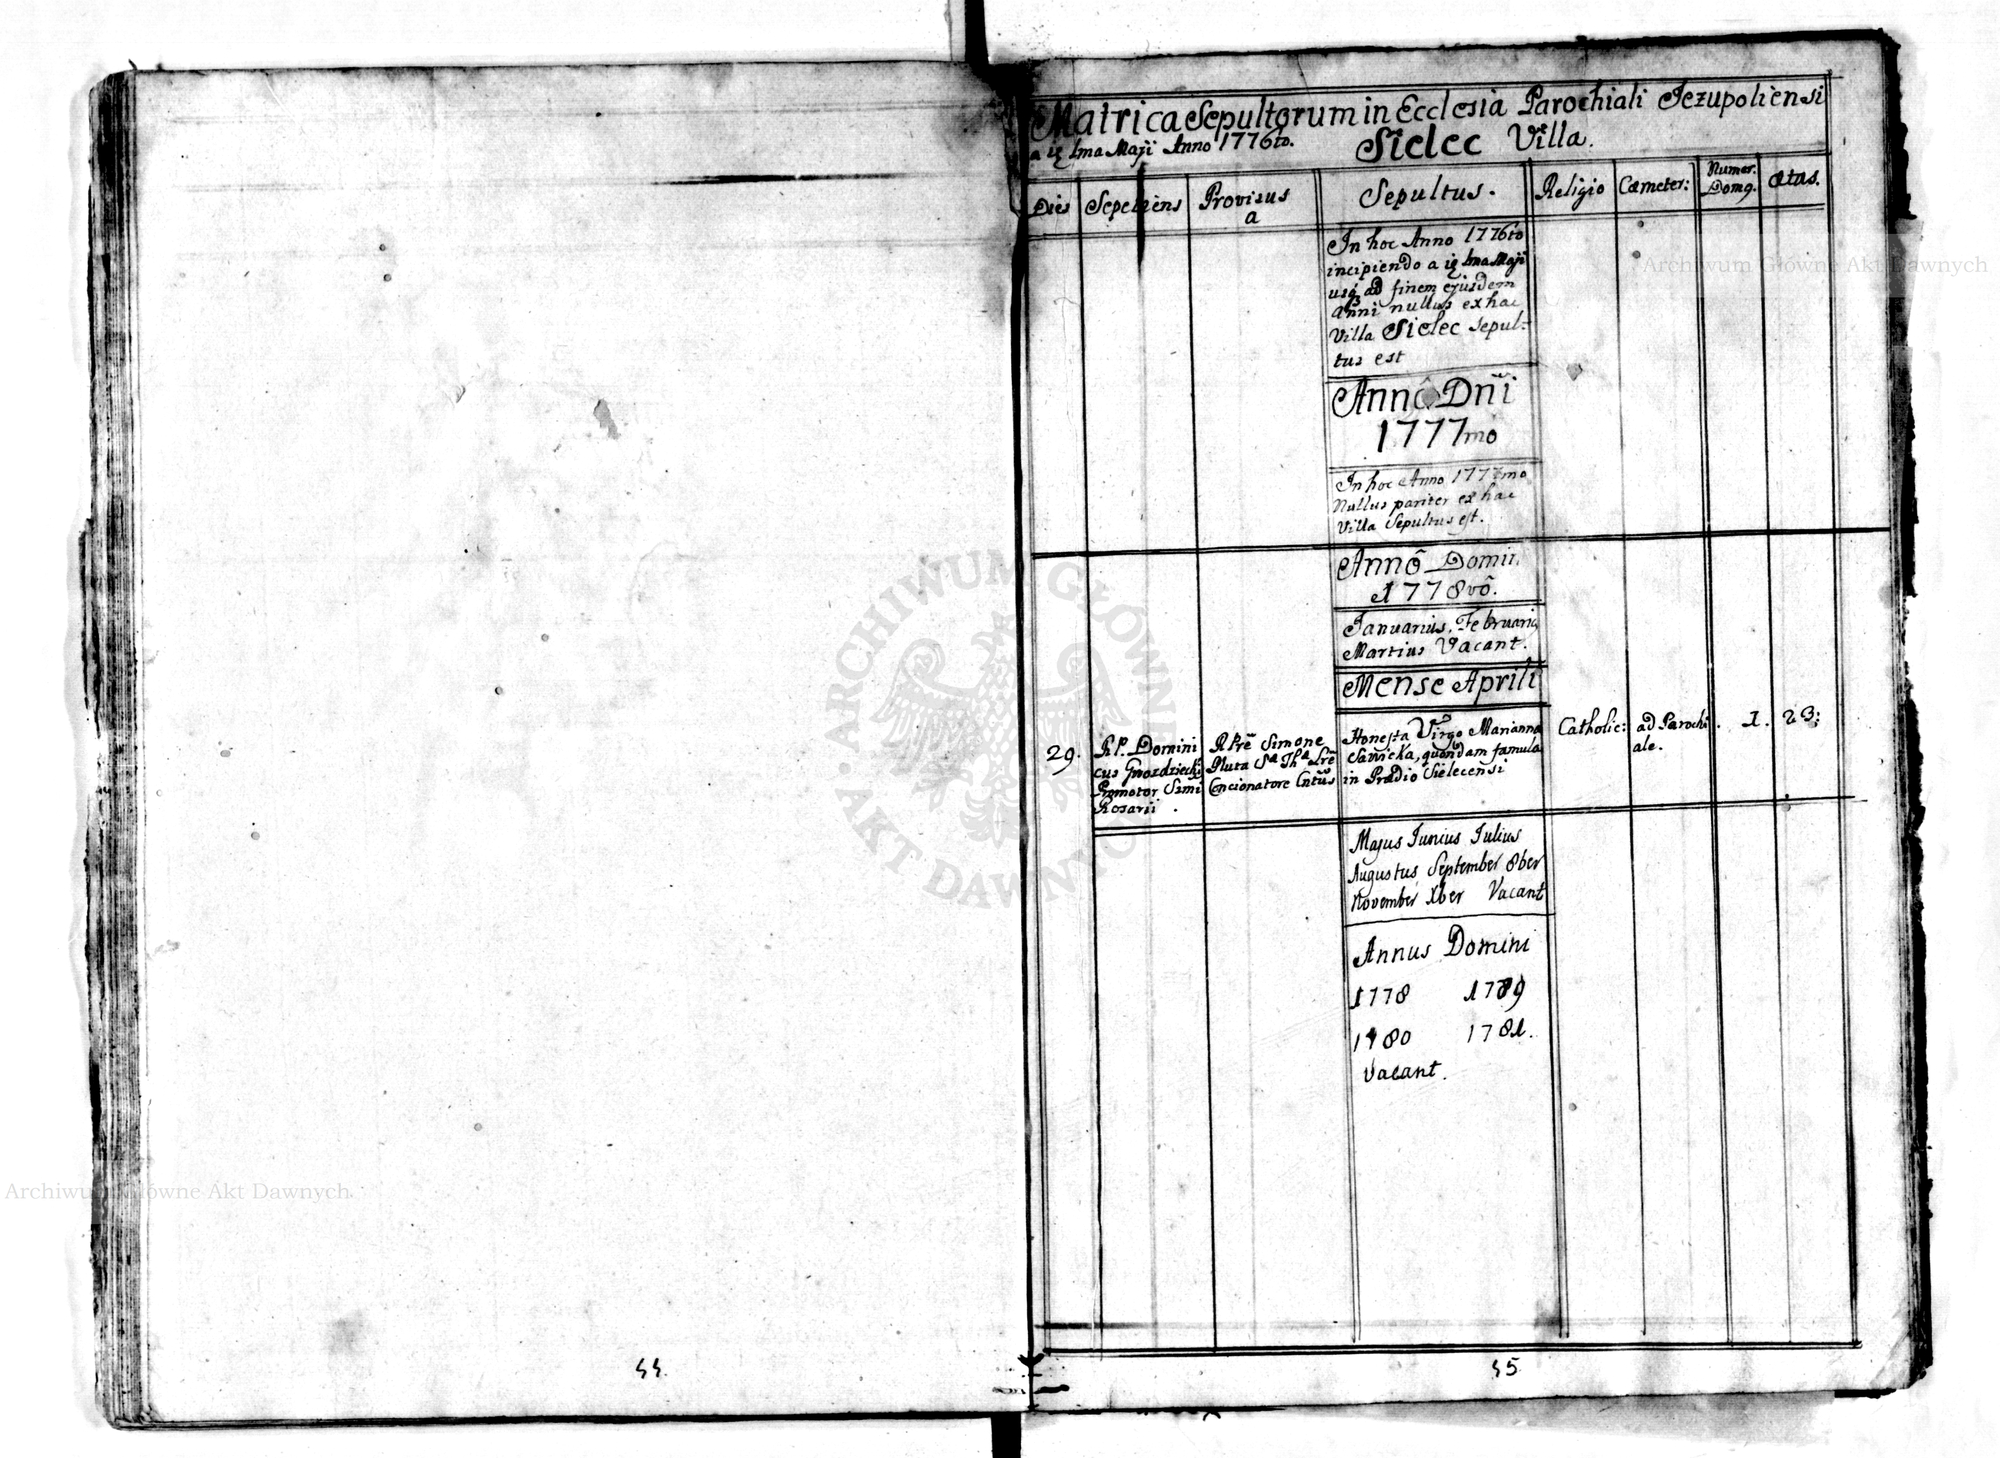 Matrica Sepultorum in Ecclesia Parochiali Jezupoliensi
a 1ma Maji Anno 1776to. Sielec Villa.
Dies Sepeliens Provisus a Sepultus. Religio Cæmeter: Numer. Domq. Ætas.
In hoc Anno 1776to
incipiendo a 1ma Maji
usq ad finem ejusdem
Anni nullus ex hac
Villa Sielec sepul-
tus est
Annô Dñi
1777mo
In hoc Anno 1777mo
Nullus pariter ex hac
Villa Sepultus est.
Annô Domini
1778vô.
Januarius, Februarius
Martius Vacant.
Mense Aprili
29.
R.P. Domini
cus Gwozdziecki
Promotor Ssmi
Rosarii.
R Pre Simone
Pluta Sa Tha Lre
Concionatore Cntus
Honesta Virgo Marianna
Sawicka, quondam famula
in Prædio Sielecensi
Catholic:
ad Parochi
ale.
1.
23:
Majus Junius Julius
Augustus September 8ber
November Xber Vacant
Annus Domini
1778 1779
1780 1781.
Vacant.
44.
45
Archiwum Główne Akt Dawnych
Archiwum Główne Akt Dawnych
ARCHIWUM GŁÓWNE AKT DAWNYCH